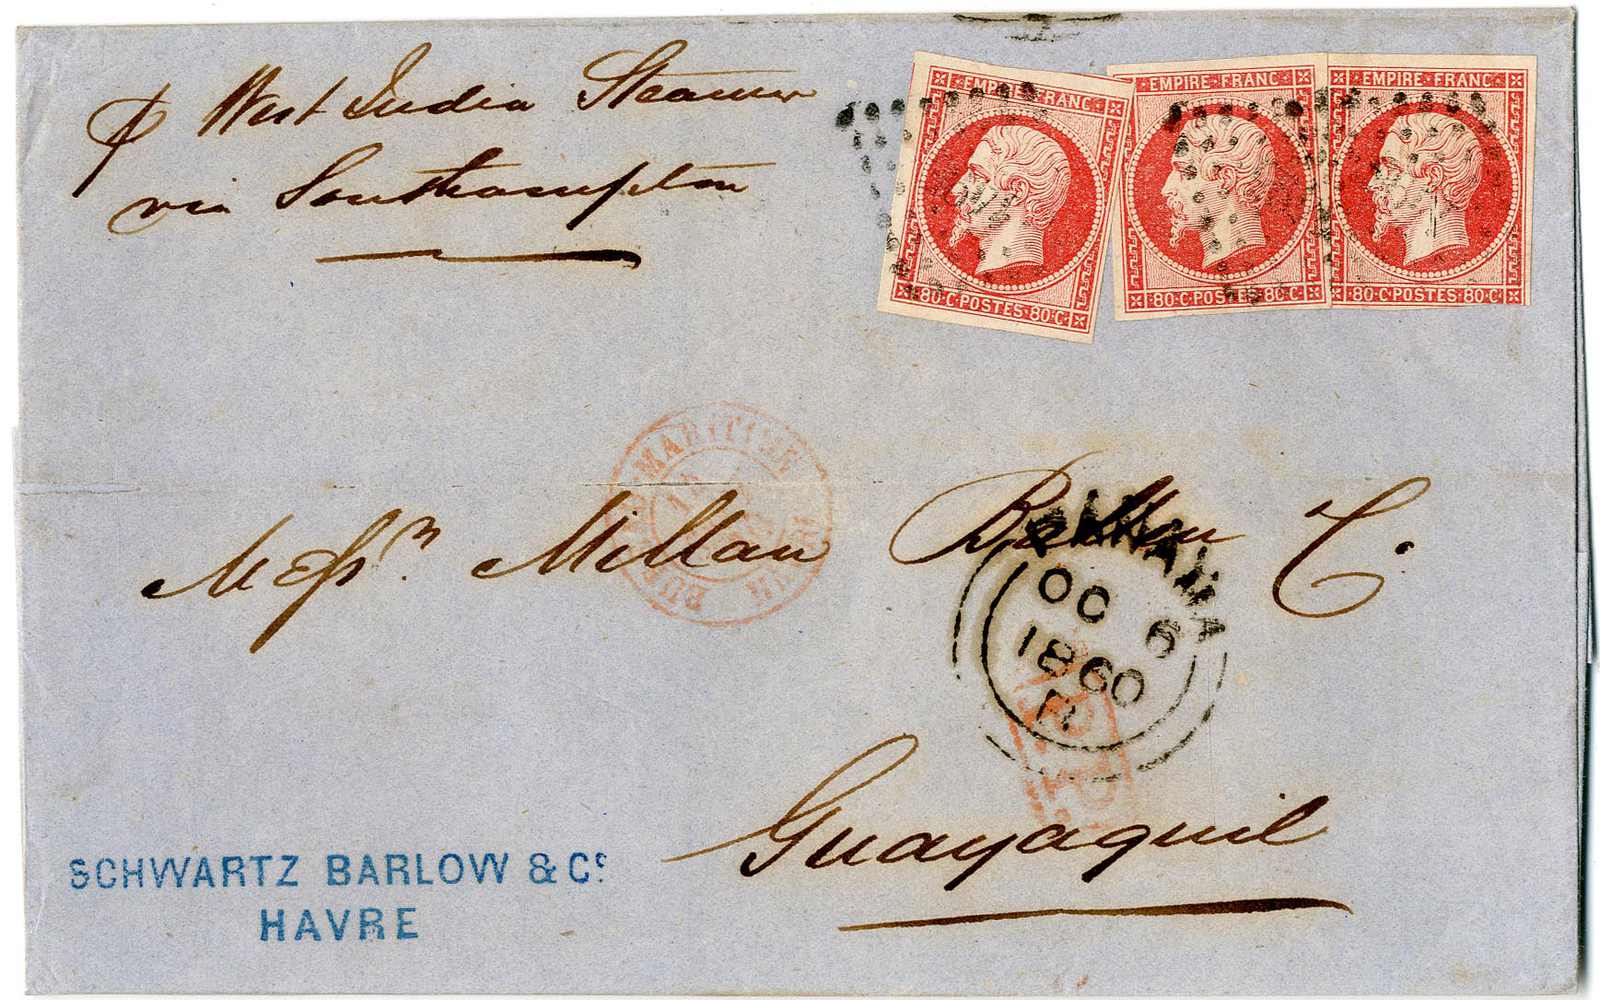 p West India Steamer
via Southampton
EMPIRE FRANC
80·C·POSTES·80·C
EMPIRE·FRANC
80·C·POSTES·80·C
EMPIRE·FRANC
80·C·POSTES·80·C
MARITIME
Messrs Millan C.
PANAMA
OC 6
1860
P.D.
Guayaquil
SCHWARTZ BARLOW & Co.
HAVRE